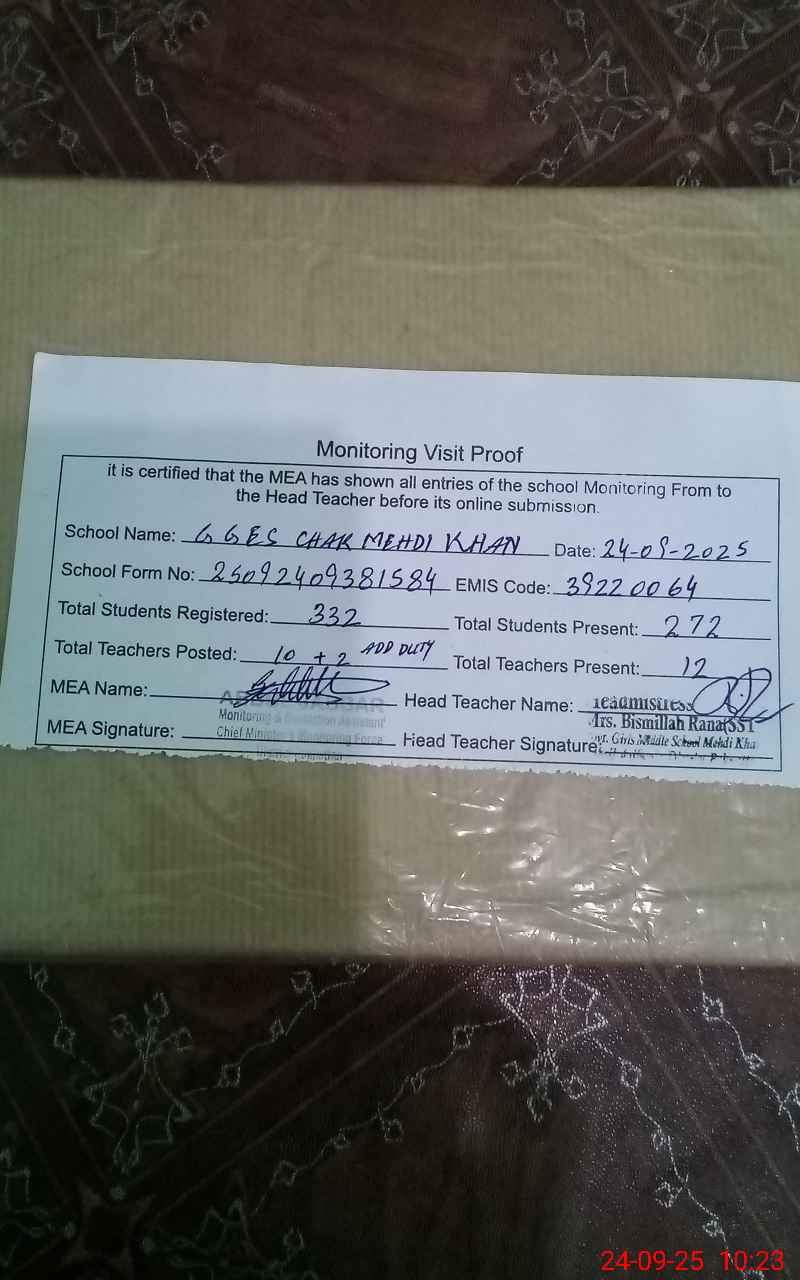 Monitoring Visit Proof
it is certified that the MEA has shown all entries of the school Monitoring From to
the Head Teacher before its online submission.
School Name: GGES CHAK MEHDI KHAN Date: 24-09-2025
School Form No: 25092409381584 EMIS Code: 39220064
Total Students Registered: 332 Total Students Present: 272
Total Teachers Posted: 10 + 2 ADD DUTY Total Teachers Present: 12
MEA Name: Head Teacher Name: Headmistress
Monitoring & Evaluation Assistant Mrs. Bismillah Rana(SST
MEA Signature: Chief Minister's Monitoring Force Head Teacher Signature: Govt. Girls Middle School Mehdi Kha
24-09-25 10:23